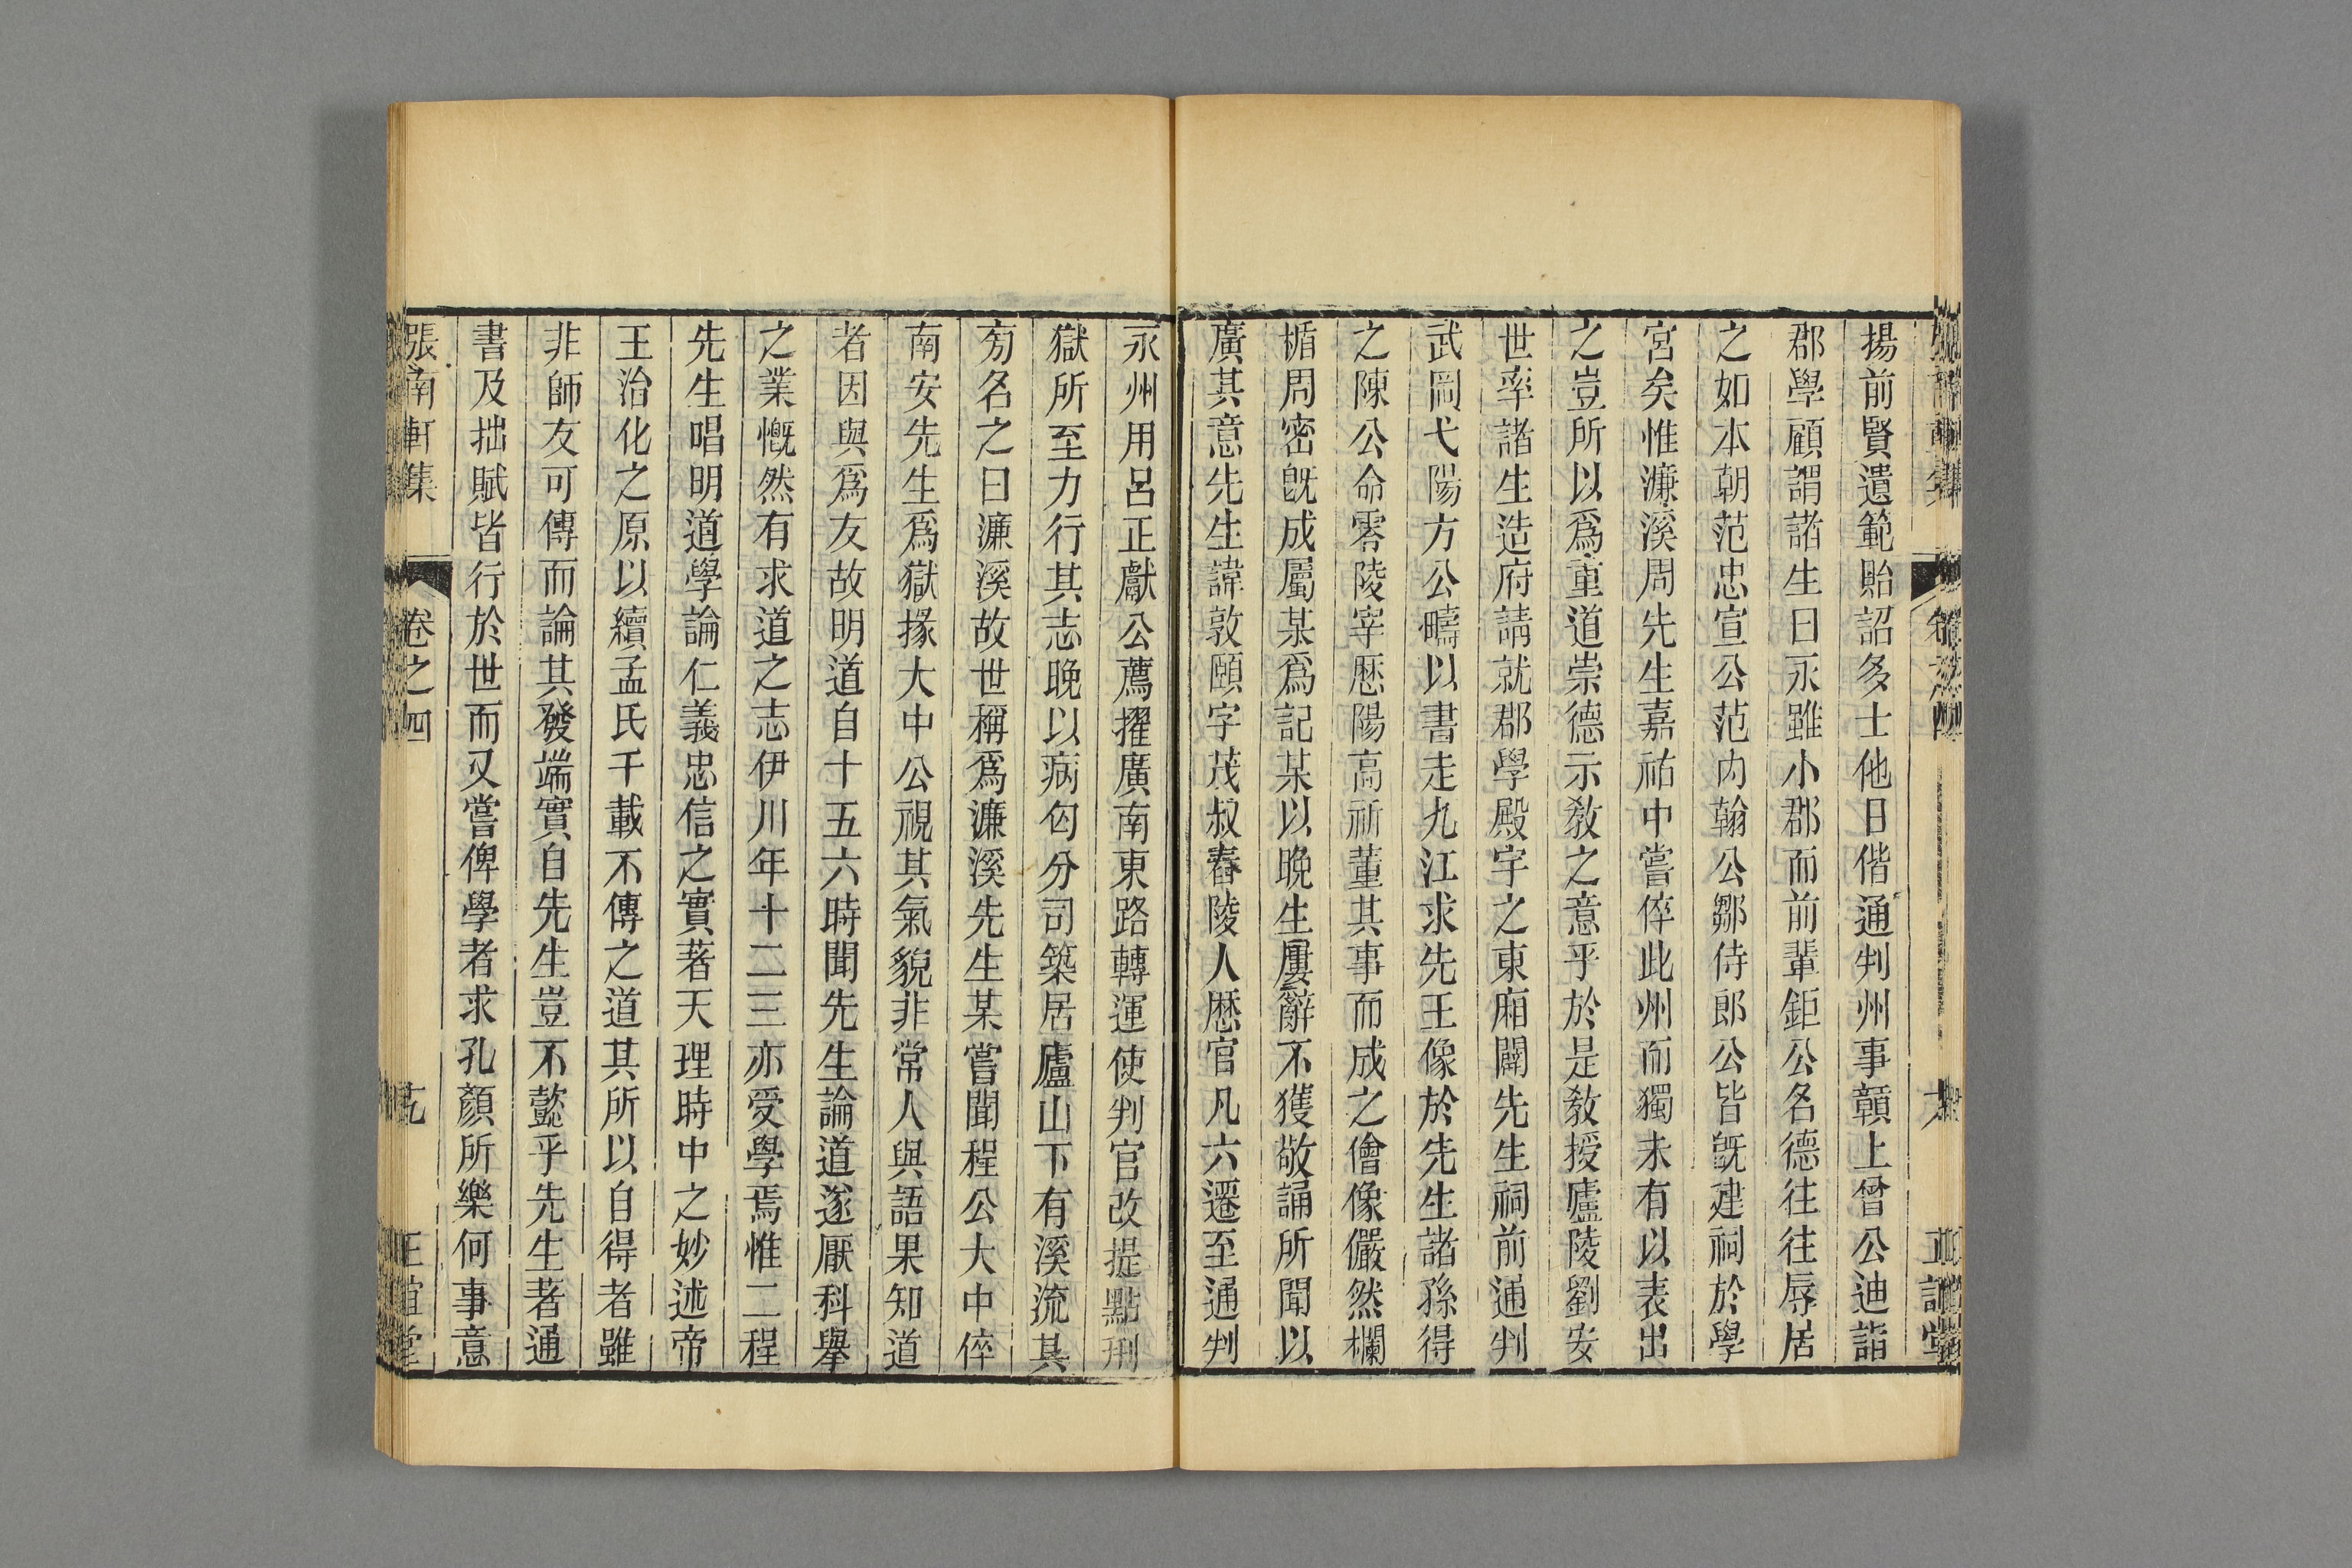 揚前賢遺範貽詔多士他日偕通判州事贑上曾公迪詣
郡學顧謂諸生曰永雖小郡而前輩鉅公名德往往辱居
之如本朝范忠宣公范内翰公鄒侍郎公皆旣建祠於學
宮矣惟濂溪周先生嘉祐中嘗倅此州而獨未有以表出
之豈所以爲重道崇德示教之意乎於是教授廬陵劉安
世率諸生造府請就郡學殿宇之東廂闢先生祠前通判
武岡弋陽方公疇以書走九江求先王像於先生諸孫得
之陳公命零陵宰歷陽高祈董其事而成之繪像儼然欄
楯周密旣成屬某爲記某以晚生屢辭不獲敬誦所聞以
廣其意先生諱敦頤字茂叔舂陵人歷官凡六遷至通判
永州用呂正獻公薦擢廣南東路轉運使判官改提點刑
獄所至力行其志晚以病匄分司築居廬山下有溪流其
旁名之曰濂溪故世稱爲濂溪先生某嘗聞程公大中倅
南安先生爲獄掾大中公視其氣貌非常人與語果知道
者因與爲友故明道自十五六時聞先生論道遂厭科舉
之業慨然有求道之志伊川年十二三亦受學焉惟二程
先生唱明道學論仁義忠信之實著天理時中之妙述帝
王治化之原以續孟氏千載不傳之道其所以自得者雖
非師友可傳而論其發端實自先生豈不懿乎先生著通
書及拙賦皆行於世而又嘗俾學者求孔顏所樂何事意
張南軒集 卷之四 正誼堂